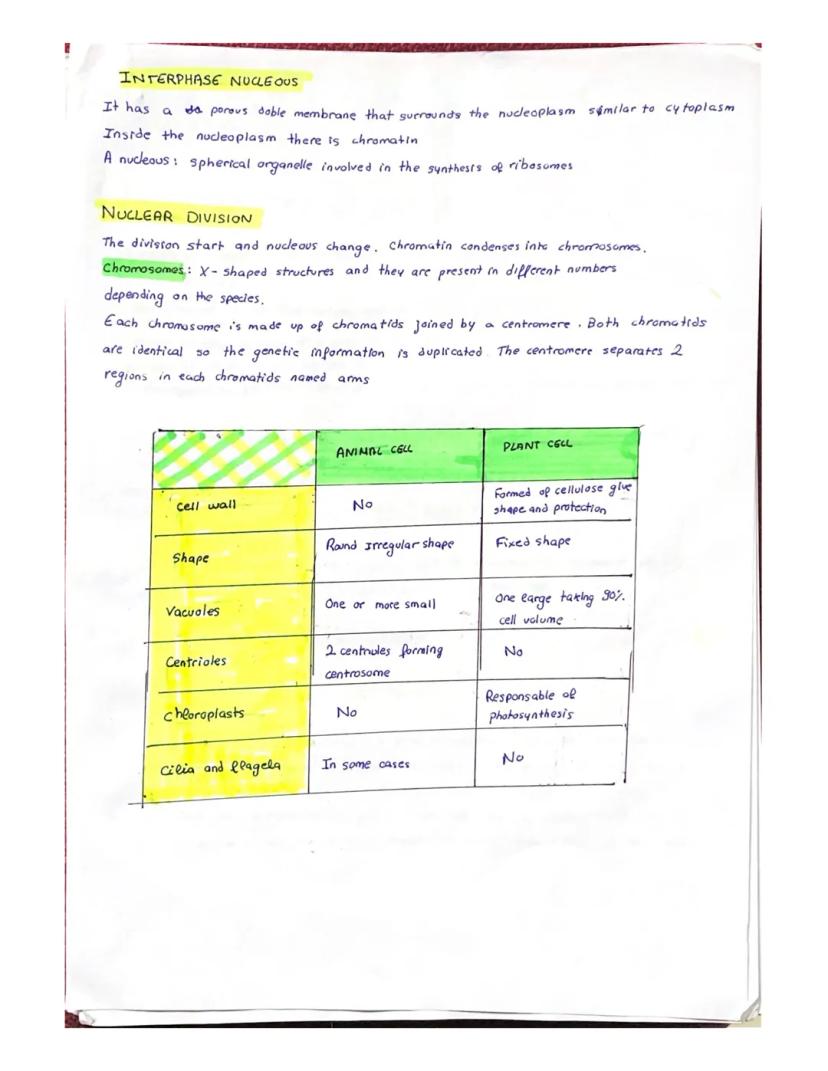 INTERPHASE NUCLEOUS
It has a porous doble membrane that surrounds the nucleoplasm similar to cytoplasm
Inside the nucleoplasm there is chromatin
A nucleous: spherical organelle involved in the synthesis of ribosomes
NUCLEAR DIVISION
The division start and nucleous change. Chromatin condenses into chromosomes.
Chromosomes: X-shaped structures and they are present in different numbers
depending on the species.
Each chromosome is made up of chromatids joined by a centromere. Both chromatids
are identical so the genetic information is duplicated. The centromere separates 2
regions in each chromatids named arms
ANIMAL CELL PLANT CELL
Cell wall No Formed of cellulose give
shape and protection
Shape Round Irregular shape Fixed shape
Vacuoles One or more small One large taking 90%.
cell volume
Centrioles 2 centrioles forming No
centrosome
Chloroplasts No Responsable of
photosynthesis
Cilia and flagela In some cases No